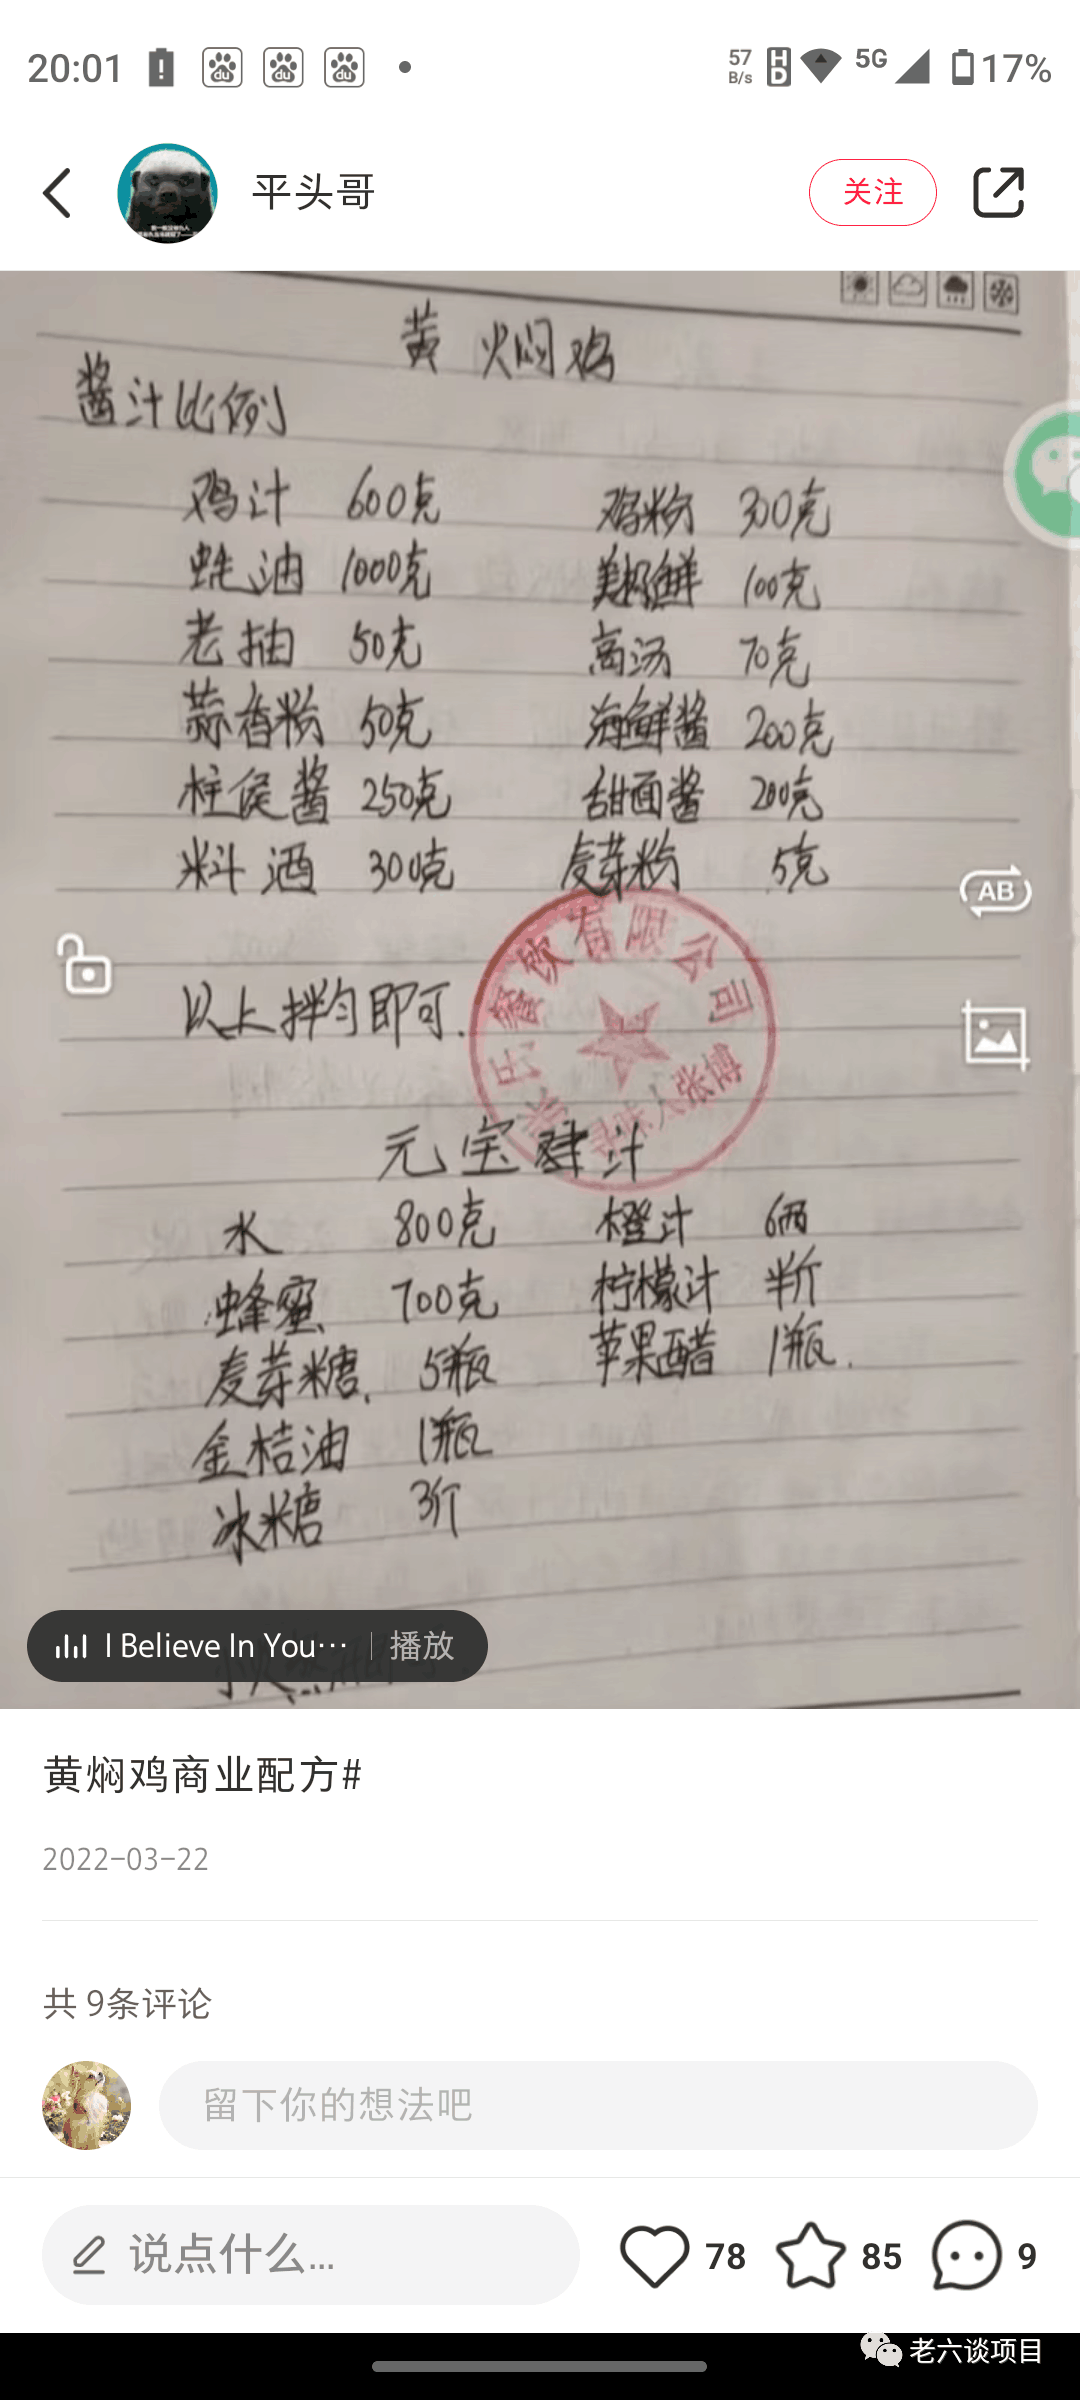 20:01 57 B/s HD 5G 17%
平头哥 关注
黄焖鸡
酱汁比例
鸡汁 600克 鸡粉 300克
蚝油 1000克 美极鲜 100克
老抽 50克 高汤 70克
蒜香粉 50克 海鲜酱 200克
柱侯酱 250克 甜面酱 200克
料酒 300克 麦芽粉 5克
以上拌匀即可.
餐饮有限公司
元宝 汁
水 800克 橙汁 6两
蜂蜜 700克 柠檬汁 半斤
麦芽糖. 5瓶 苹果醋 1瓶.
金桔油 1瓶
冰糖 3斤
AB
I Believe In You… 播放
黄焖鸡商业配方#
2022-03-22
共 9条评论
留下你的想法吧
说点什么... 78 85 9
老六谈项目